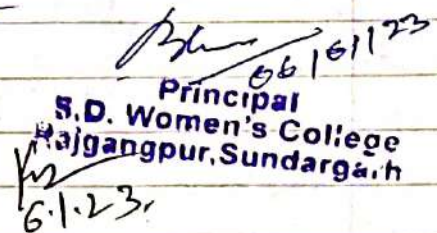 06/01/23
Principal
S.D. Women's College
Rajgangpur, Sundargarh
6.1.23.